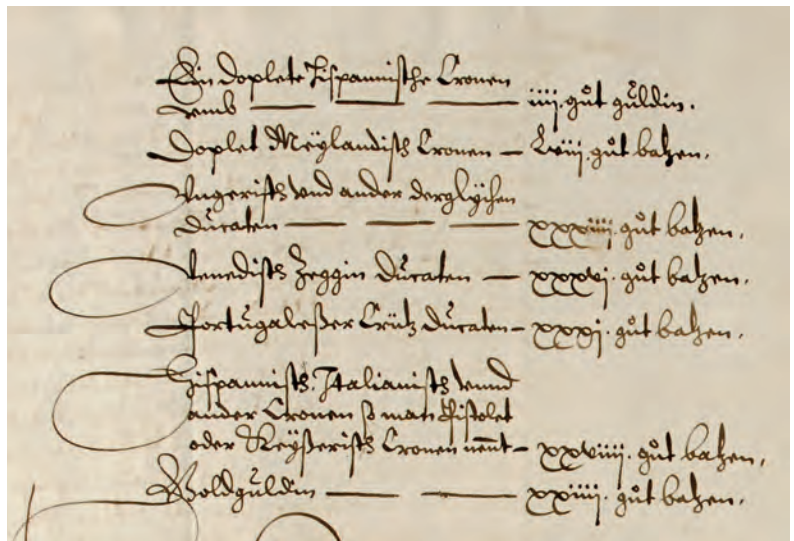 Ein doplete Hispannische Cronen
vmb — — — iiii. gůt guldin.
Doplet Meÿlandisch Cronen — Lviii. gůt batzen.
Vngerisch vnd ander derglÿchen
ducaten — — — xxxviiii. gůt batzen.
Venedisch Zeggin ducaten — xxxvj. gůt batzen.
Portugalesser Crütz ducaten — xxxj. gůt batzen.
Hispannisch. Italianisch vnnd
ander Cronen so man Pistolet
oder Keÿsserisch Cronen nent — xxviiii. gůt batzen.
Goldguldin — — xxiiii. gůt batzen.